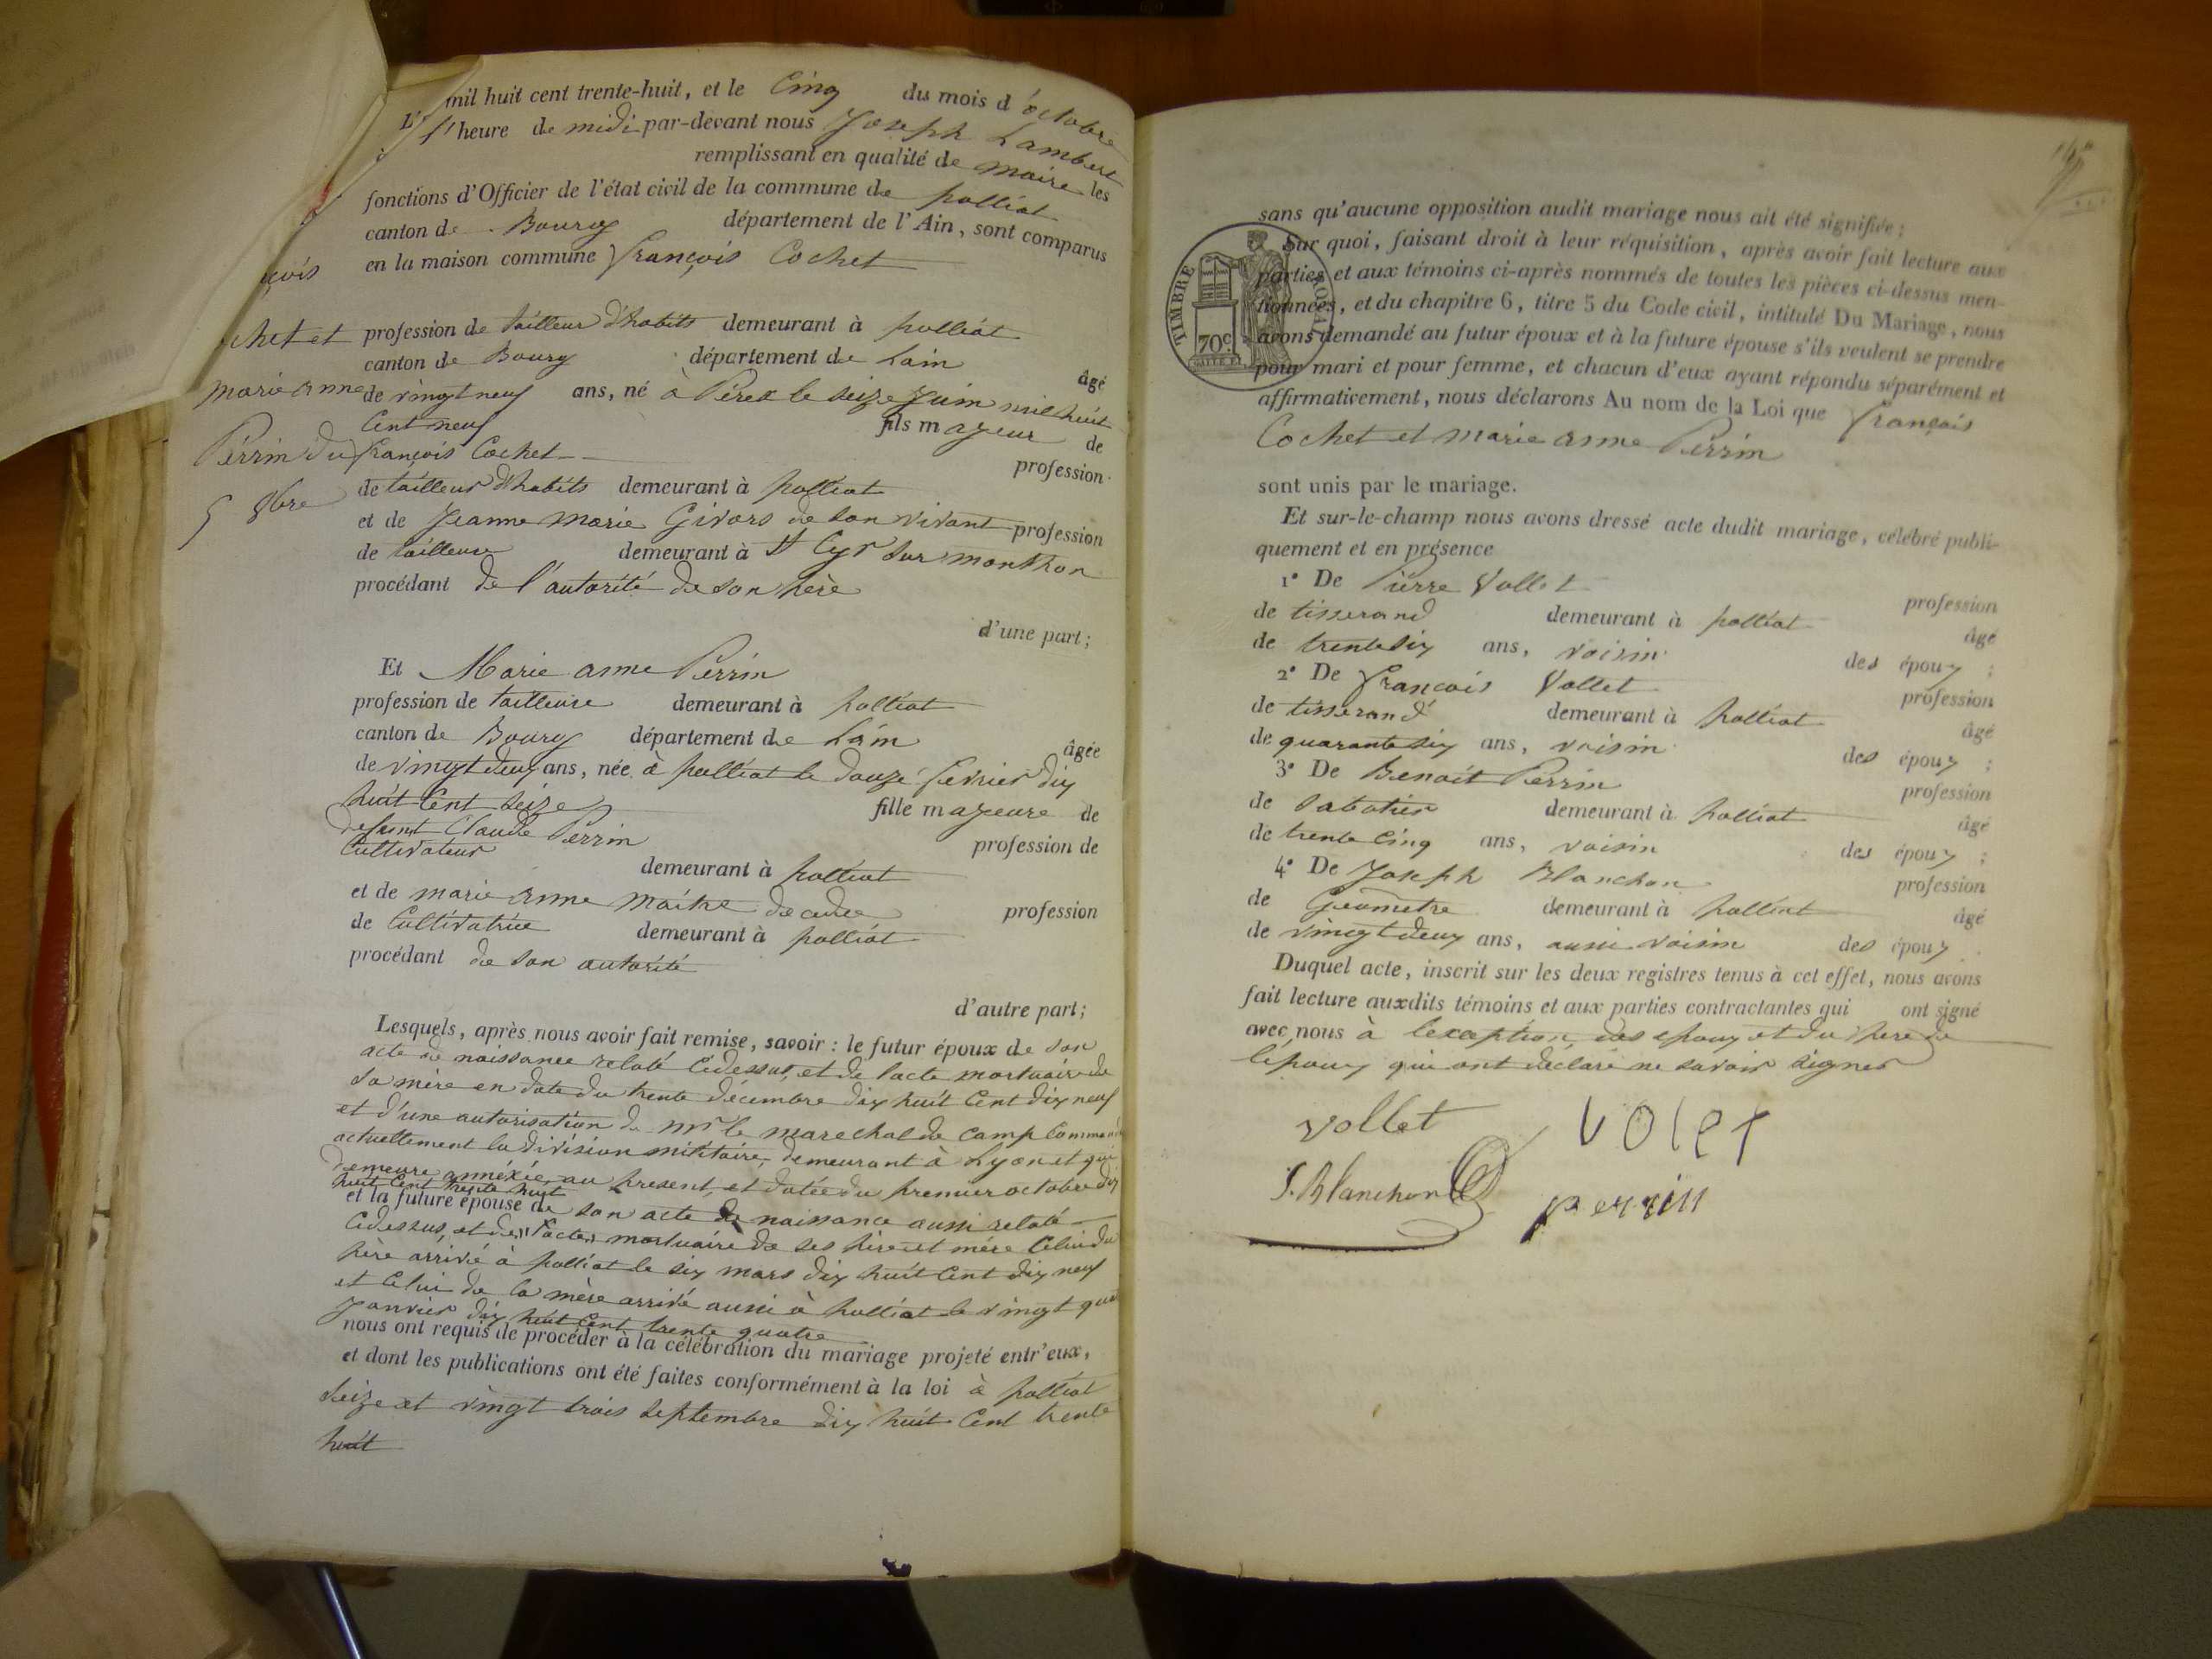 mil huit cent trente-huit, et le Cinq du mois d'octobre
l'heure de midi par-devant nous Joseph Lambert
remplissant en qualité de maire les
fonctions d'Officier de l'état civil de la commune de polliat
canton de Bourg département de l'Ain, sont comparus
en la maison commune françois Cochet
profession de tailleur d'habits demeurant à polliat
canton de Bourg département de Lain âgé
de vingt neuf ans, né à Pérex le seize Juin mil huit
Cent neuf fils mayeur de
françois Cochet profession
de tailleur d'habits demeurant à polliat
et de Jeanne Marie Givors de son vivant profession
de tailleuse demeurant à St Cyr sur manthon
procédant de l'autorité de son père
d'une part;
Et Marie anne Perrin
profession de tailleuse demeurant à polliat
canton de Bourg département de Lain âgée
de vingt deux ans, née à polliat le douze fevrier dix
huit Cent seize fille mayeure de
defunt Claude Perrin profession de
Cultivateur demeurant à polliat
et de marie anne maitre décédée profession
de Cultivatrice demeurant à polliat
procédant de son autorité
d'autre part;
Lesquels, après nous avoir fait remise, savoir : le futur époux de son
acte de naissance relaté Cidessus, et de l'acte mortuaire de
sa mère en date du trente décembre dix huit Cent dix neuf
et d'une autorisation de mr le marechal de camp Command
actuellement la division militaire, demeurant à Lyon et qui
demeure annéxée au present, et datée du premier octobre dix
huit Cent trente huit
et la future épouse de son acte de naissance aussi relaté
Cidessus, et des actes mortuaire de ses père et mère Celui du
père arrivé à polliat le six mars dix huit Cent dix neuf
et Celui de la mère arrivé aussi à polliat le vingt
Janvier dix huit Cent trente quatre
nous ont requis de procéder à la célébration du mariage projeté entr'eux,
et dont les publications ont été faites conformément à la loi à polliat
Seize et vingt trois septembre dix huit Cent trente
huit
chet et
marie anne
Perrin du
5 8bre
sans qu'aucune opposition audit mariage nous ait été signifiée;
Sur quoi, faisant droit à leur réquisition, après avoir fait lecture aux
parties et aux témoins ci-après nommés de toutes les pièces ci-dessus men-
tionnées, et du chapitre 6, titre 5 du Code civil, intitulé Du Mariage, nous
avons demandé au futur époux et à la future épouse s'ils veulent se prendre
pour mari et pour femme, et chacun d'eux ayant répondu séparément et
affirmativement, nous déclarons Au nom de la Loi que françois
Cochet et marie anne Perrin
TIMBRE ROYAL
70c
sont unis par le mariage.
Et sur-le-champ nous avons dressé acte dudit mariage, célébré publi-
quement et en présence
1° De Pierre Vollet profession
de tisserand demeurant à polliat âgé
de trente six ans, voisin des époux ;
2° De françois Vollet profession
de tisserand demeurant à polliat âgé
de quarante six ans, voisin des époux ;
3° De Benoit Perrin profession
de sabotier demeurant à polliat âgé
de trente Cinq ans, voisin des époux ;
4° De Joseph Blanchon profession
de Geometre demeurant à polliat âgé
de vingt deux ans, aussi voisin des époux.
Duquel acte, inscrit sur les deux registres tenus à cet effet, nous avons
fait lecture auxdits témoins et aux parties contractantes qui ont signé
avec nous à lexception des epoux et du père de
lépoux qui ont déclaré ne savoir signer
vollet VOLET
J. Blanchon perrin